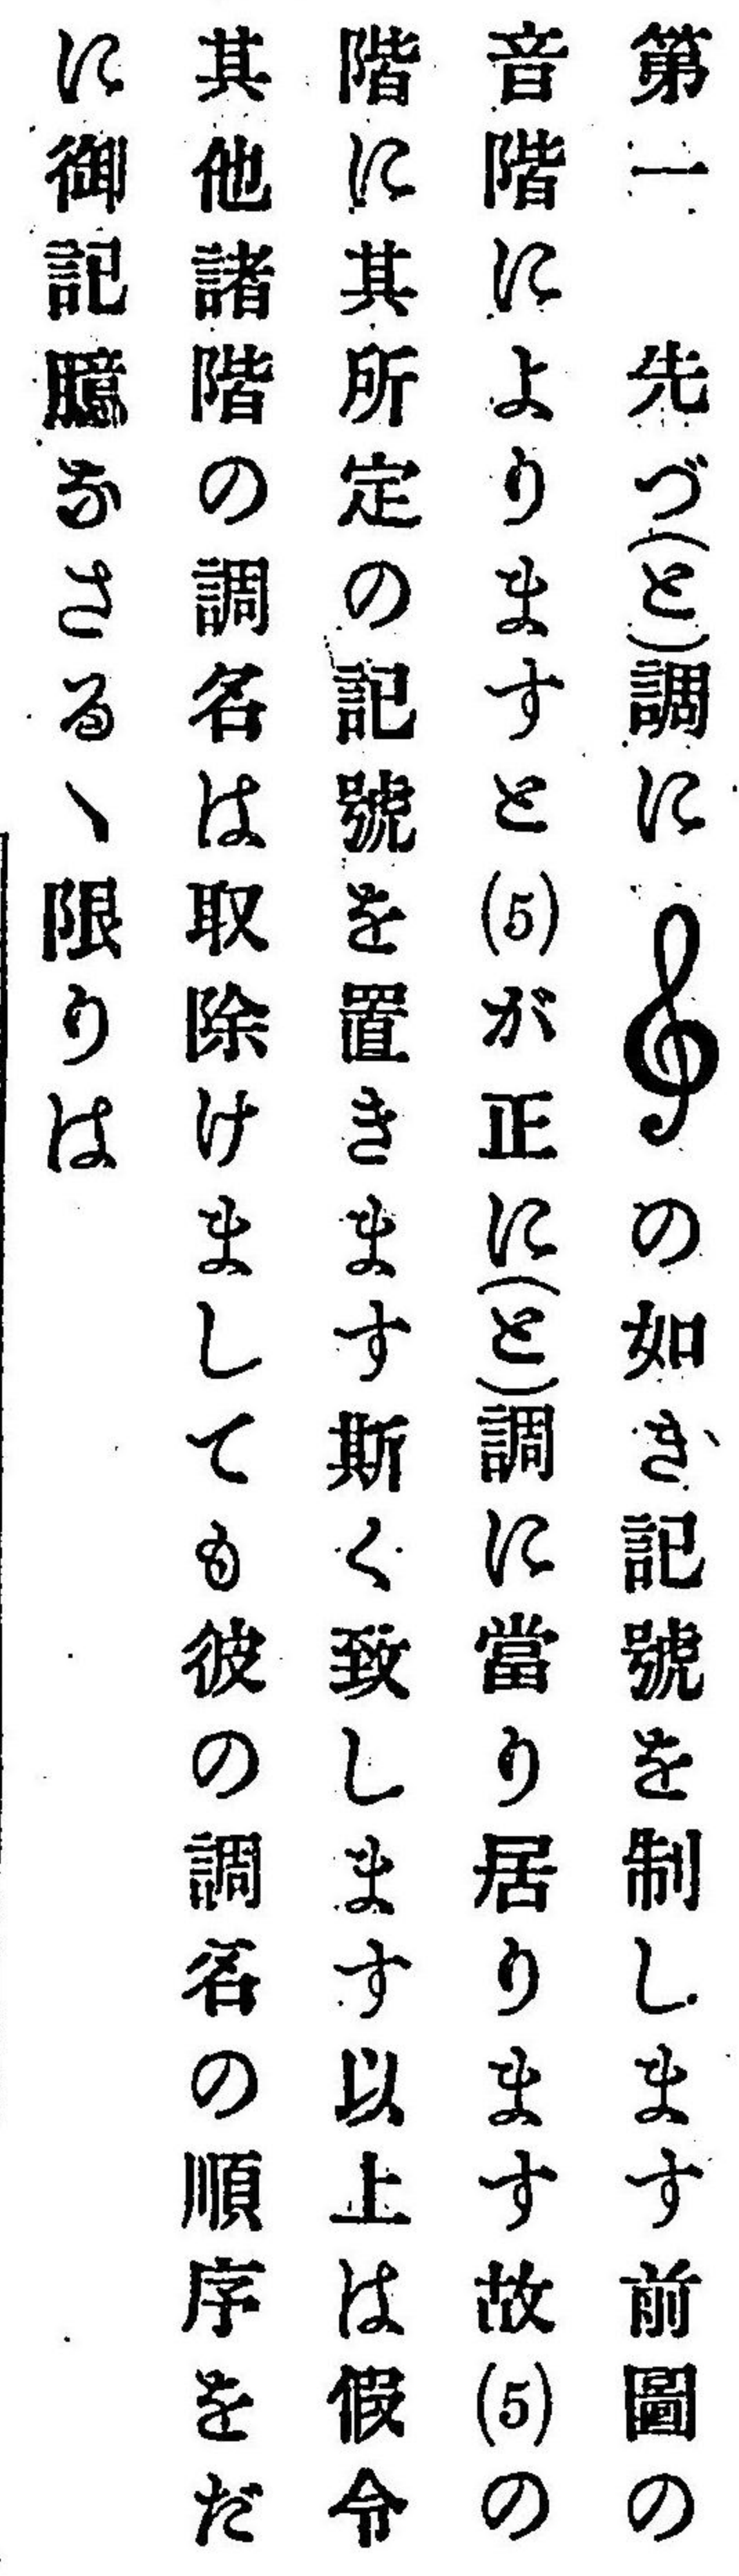 第一　先づ(と)調に𝄞の如き記號を制します前圖の
音階によりますと(5)が正に(と)調に當り居ります故(5)の
階に其所定の記號を置きます斯く致します以上は假令
其他諸階の調名は取除けましても彼の調名の順序をだ
に御記臆なさるヽ限りは